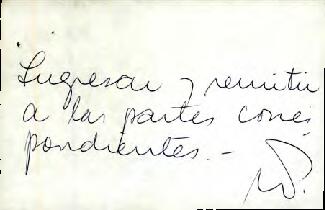 Ingresar y remitir
a las partes corres
pondientes.-